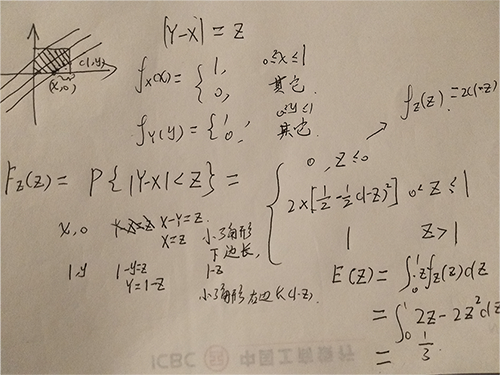 |Y-X| = Z
(1,y)
(x,0)
f_X(x) = { 1, 0≤x≤1
0, 其它
f_Y(y) = { 1, 0≤y≤1
0, 其它.
f_Z(z) = 2(1-z)
F_Z(z) = P{|Y-X|<Z} = { 0, Z≤0
2×[1/2-1/2(1-Z)²] 0<Z≤1
1 Z>1
x,0 X-Y=Z. 小三角形
X=Z 下边长,
1-Z
1,y 1-Y=Z
Y=1-Z 小三角形右边长(1-Z).
E(Z) = ∫₀¹ z f_Z(z)dz
= ∫₀¹ 2z-2z² dz
= 1/3
ICBC 中国工商银行